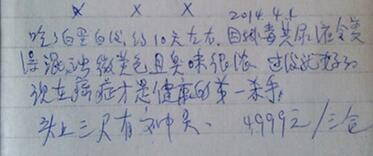 × × × 2014.4.1
吃了白蛋白后,约10天左右,因排毒其尿液会变
得混浊微黄色且臭味很浓 过后就好了
现在癌症才是健康的第一杀手,
头上三尺有神灵、 4999元/三盒